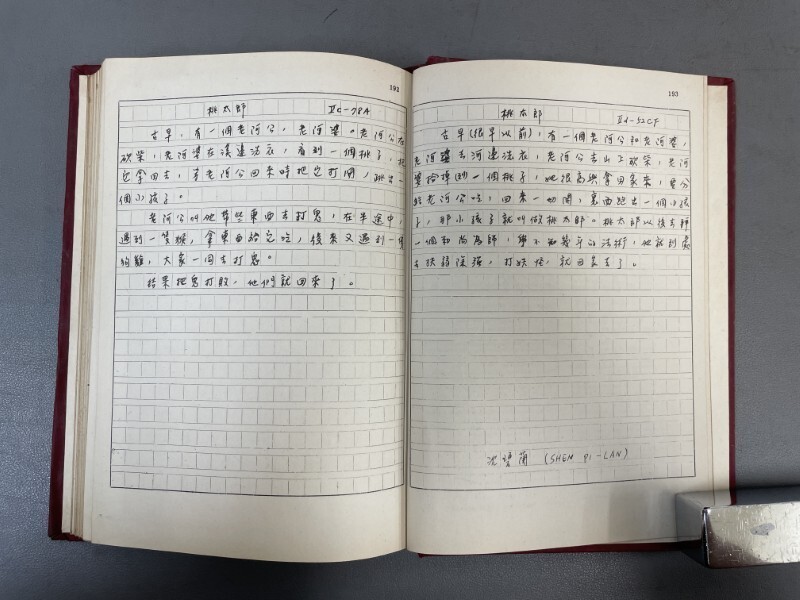 192
桃太郎 IIC-78A
古早,有一個老阿公,老阿婆。老阿公在
砍柴,老阿婆在溪邊洗衣,看到一個桃子,把
它拿回去,等老阿公回來時把它打開,跳出一
個小孩子。
老阿公叫他帶些東西去打鬼,在半途中,
遇到一隻猴,拿東西給它吃,後來又遇到一隻
雞,大家一同去打鬼。
結果把鬼打敗,他們就回來了。
193
桃太郎 IId-52CF
古早(很早以前),有一個老阿公和老阿婆,
老阿婆去河邊洗衣,老阿公去山上砍柴,老阿
婆撿到一個桃子,她很高興拿回家來,要分
給老阿公吃,回來一切開,裏面跑出一個小孩
子,那小孩子就叫做桃太郎。桃太郎以後去拜
一個和尚為師,學不如幾牙的法術,他就到處
去扶弱除強,打妖怪,就回家去了。
沈碧蘭 (SHEN PI-LAN)